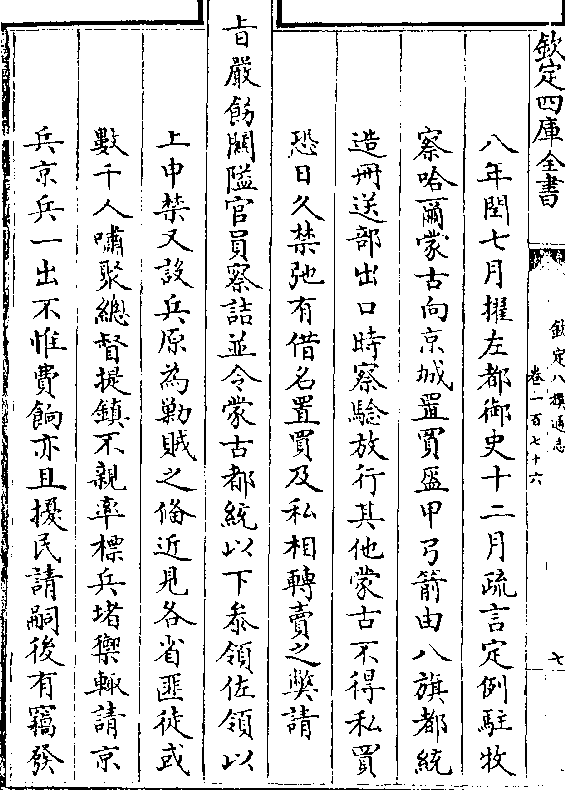 欽定四庫全書
欽定八旗通志
卷一百七十六
七
八年閏七月擢左都御史十二月疏言定例駐牧
察哈爾蒙古向京城置買盔甲弓箭由八旗都統
造冊送部出口時察驗放行其他蒙古不得私買
恐日久禁弛有借名置買及私相轉賣之弊請
㫖嚴飭關隘官員察詰並令蒙古都統以下叅領佐領以
上申禁又設兵原為勦賊之備近見各省匪徒或
數千人嘯聚總督提鎮不親率標兵堵禦輙請京
兵京兵一出不惟費餉亦且擾民請嗣後有竊發